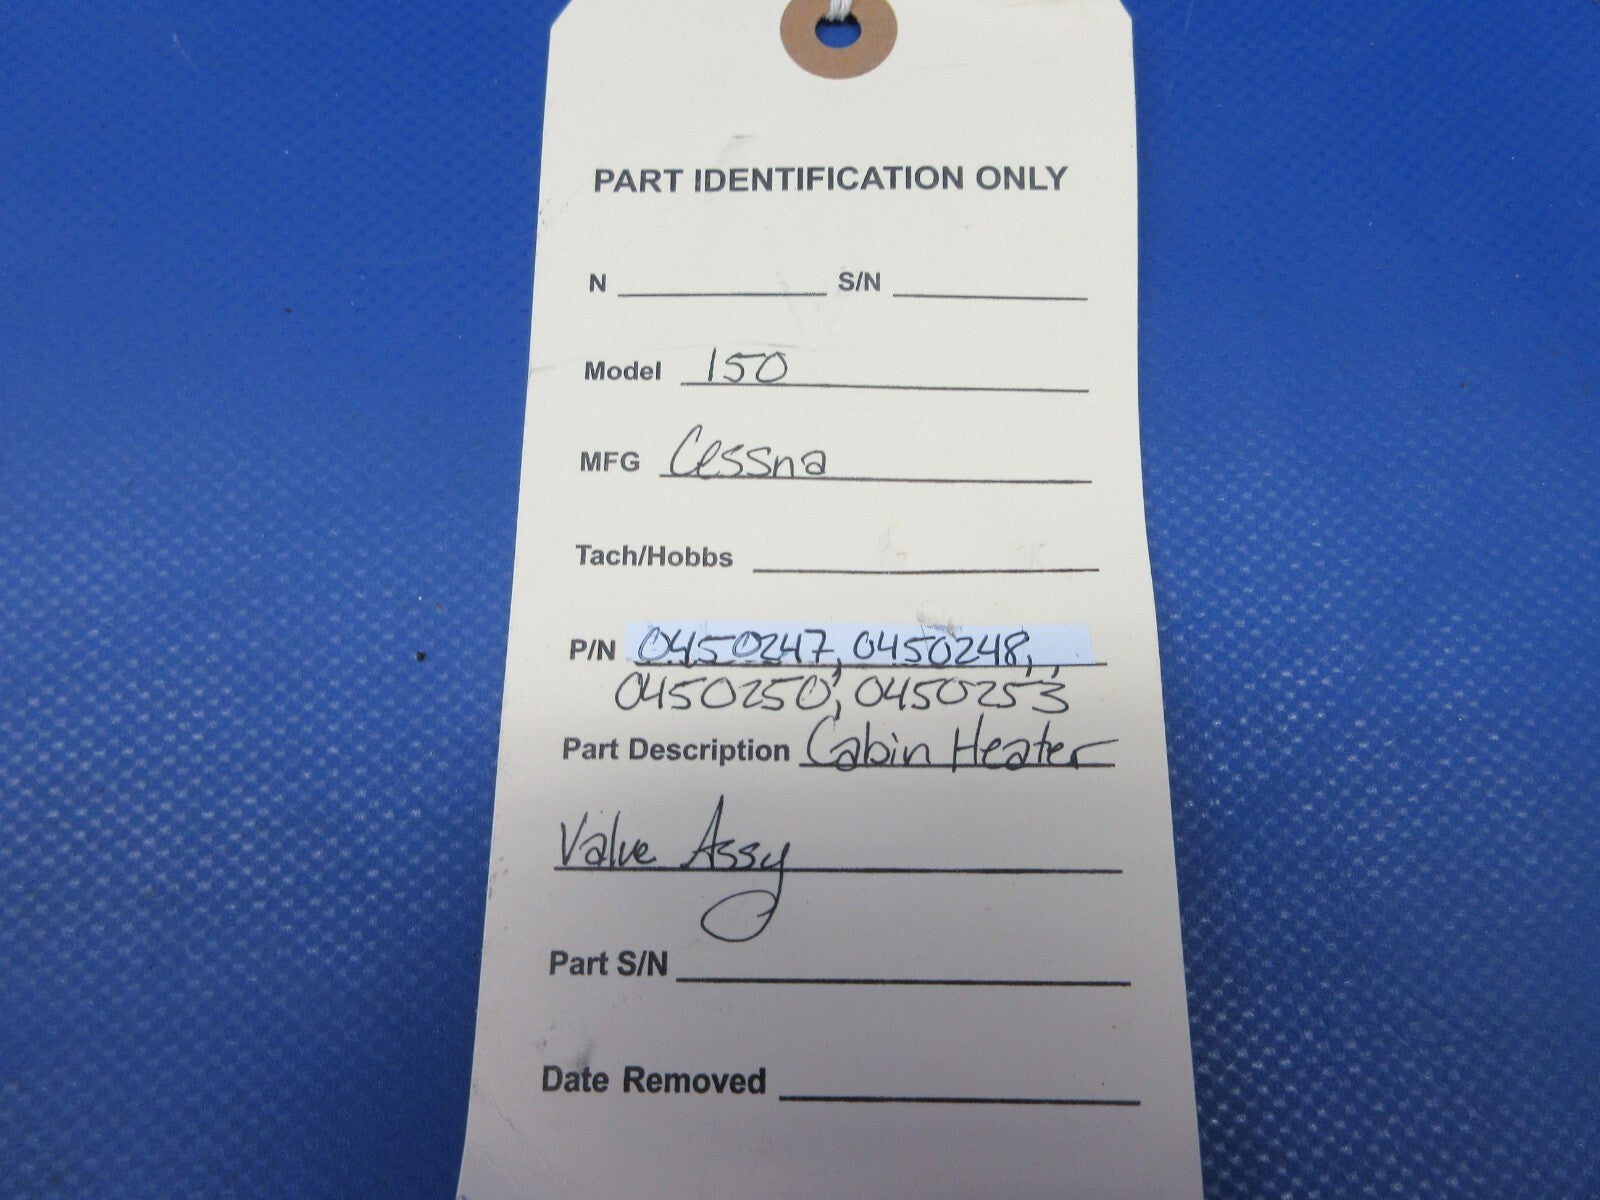 PART IDENTIFICATION ONLY
N S/N
Model 150
MFG Cessna
Tach/Hobbs
P/N 0450247, 0450248,
0450250, 0450253
Part Description Cabin Heater
Valve Assy
Part S/N
Date Removed